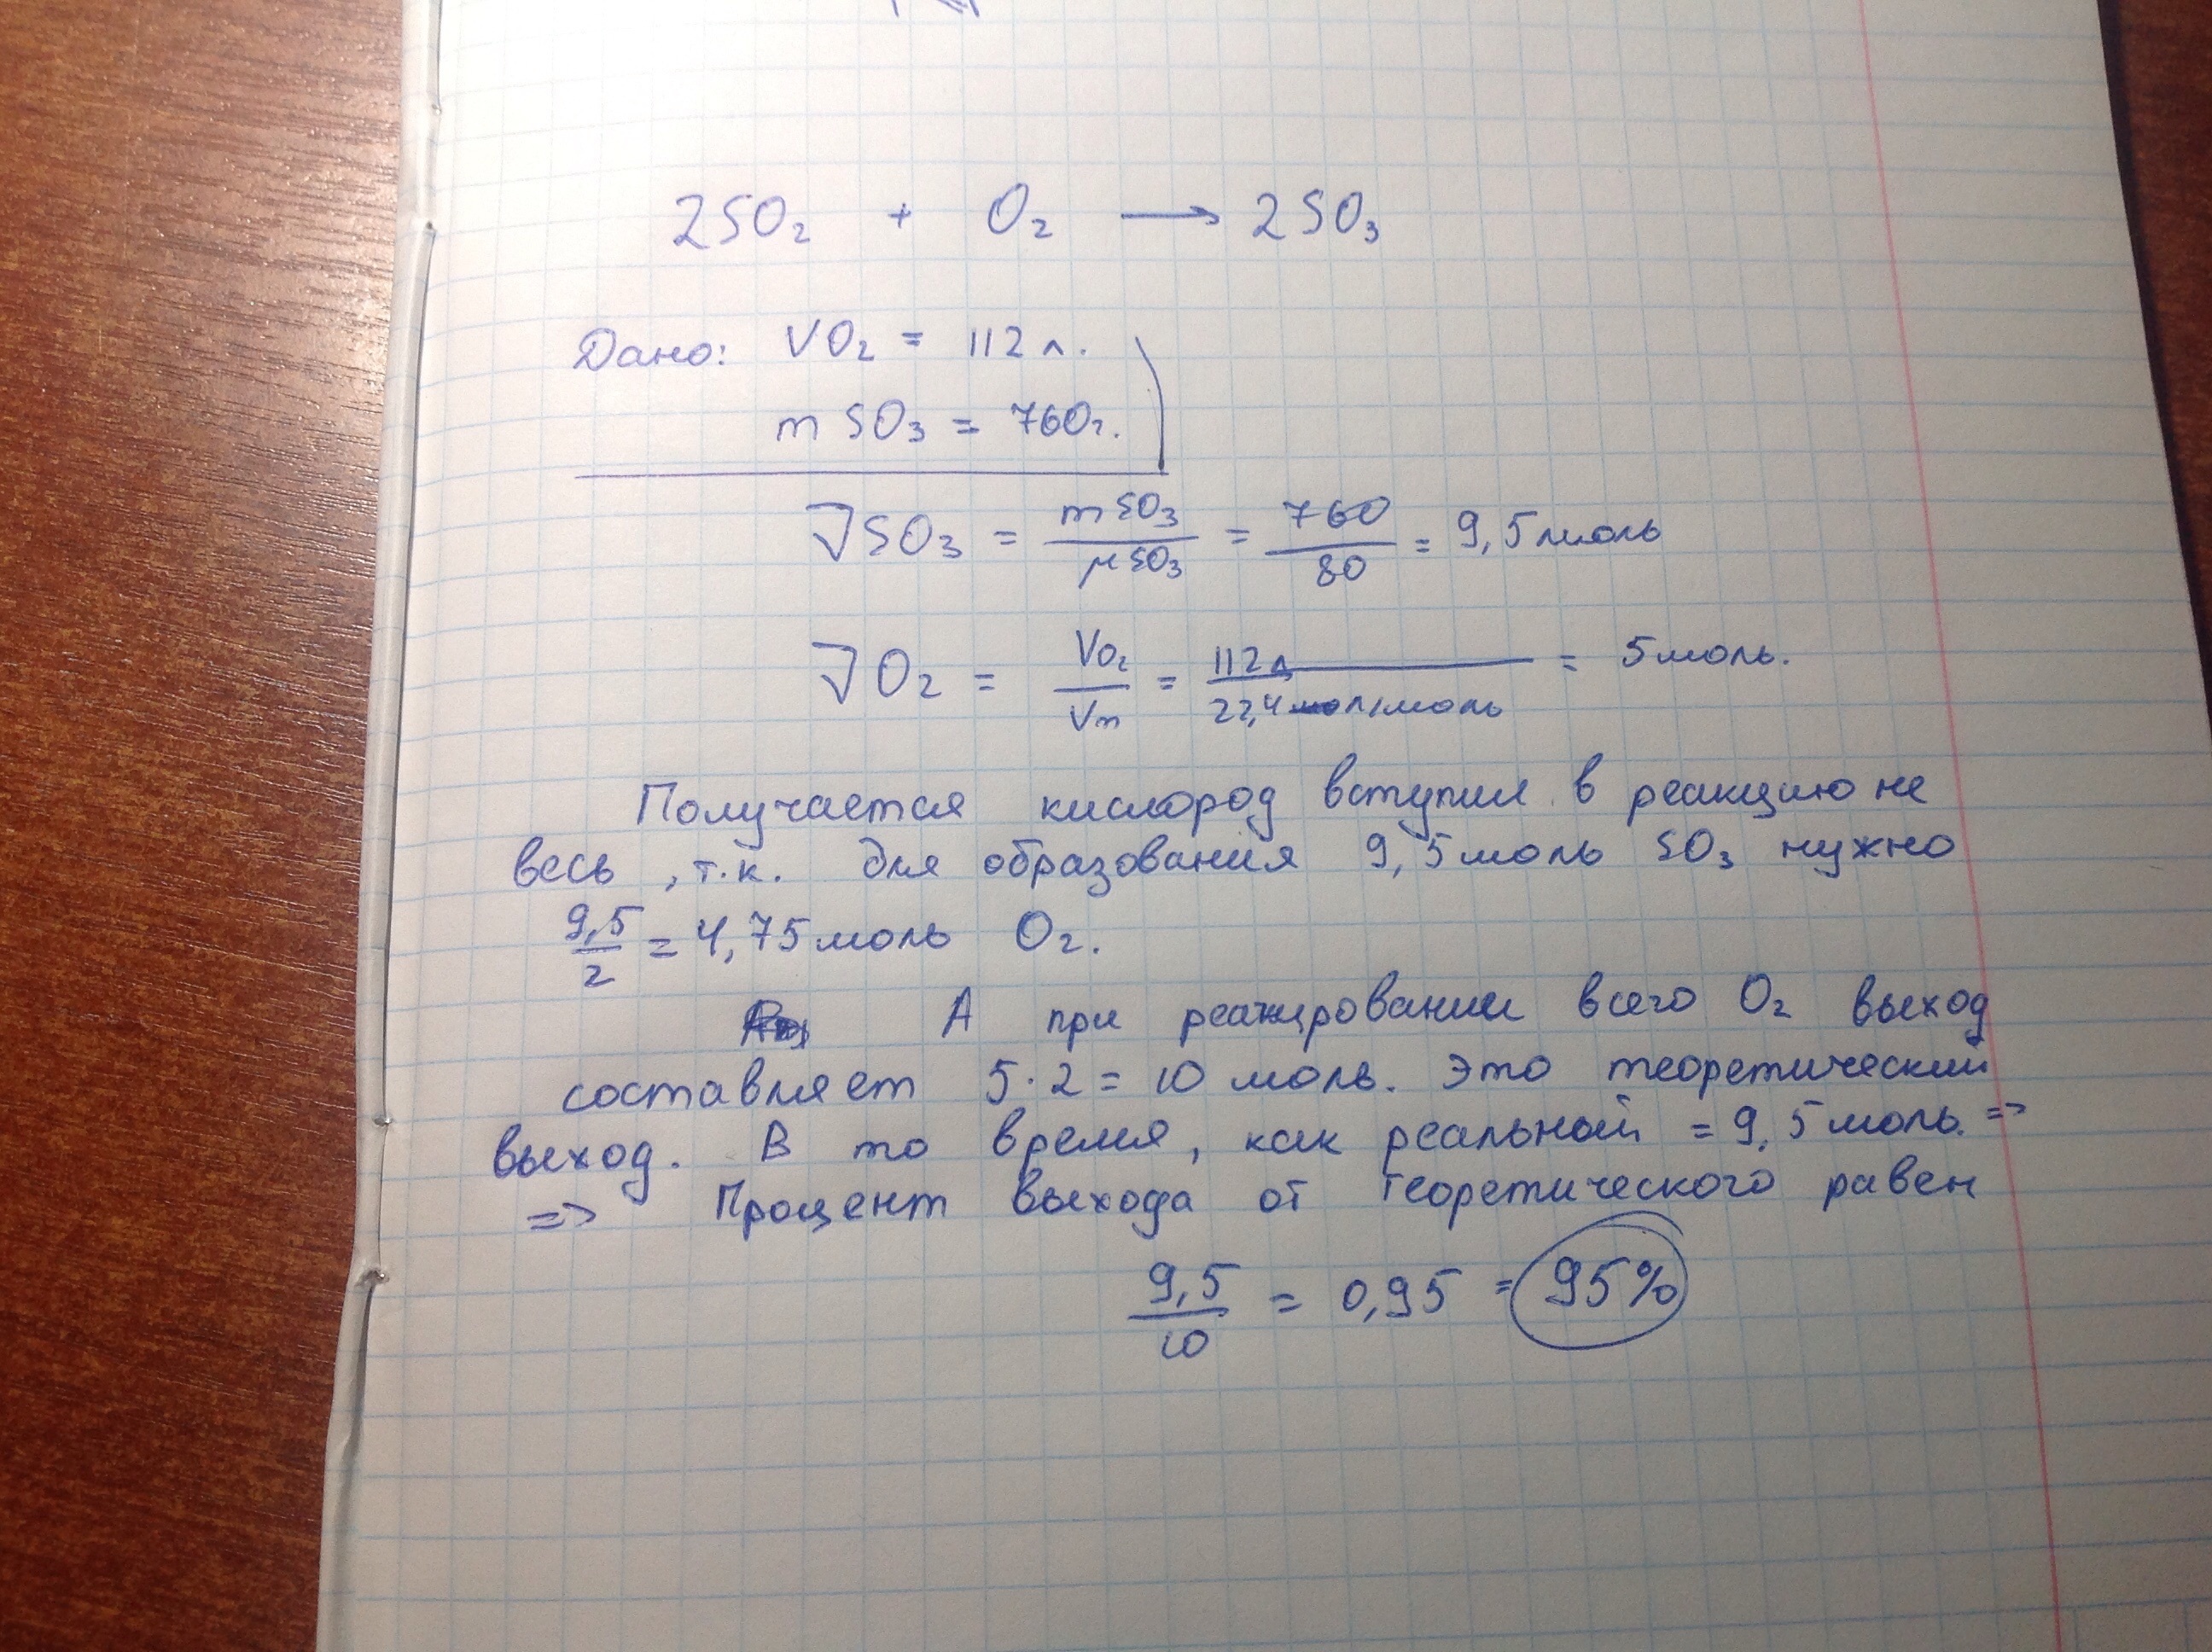 2SO₂ + O₂ → 2SO₃
Дано: VO₂ = 112 л.
m SO₃ = 760г.
νSO₃ = mSO₃/μSO₃ = 760/80 = 9,5 моль
νO₂ = Vo₂/Vm = 112л/22,4 л/моль = 5 моль.
Получается кислород вступил в реакцию не
весь, т.к. для образования 9,5 моль SO₃ нужно
9,5/2 = 4,75 моль O₂.
А при реагировании всего O₂ выход
составляет 5·2 = 10 моль. Это теоретический
выход. В то время, как реальный = 9,5 моль. =>
=> Процент выхода от теоретического равен
9,5/10 = 0,95 = 95%